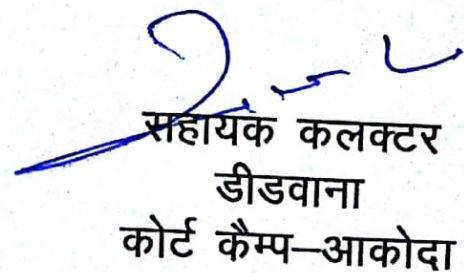 सहायक कलक्टर
डीडवाना
कोर्ट कैम्प–आकोदा